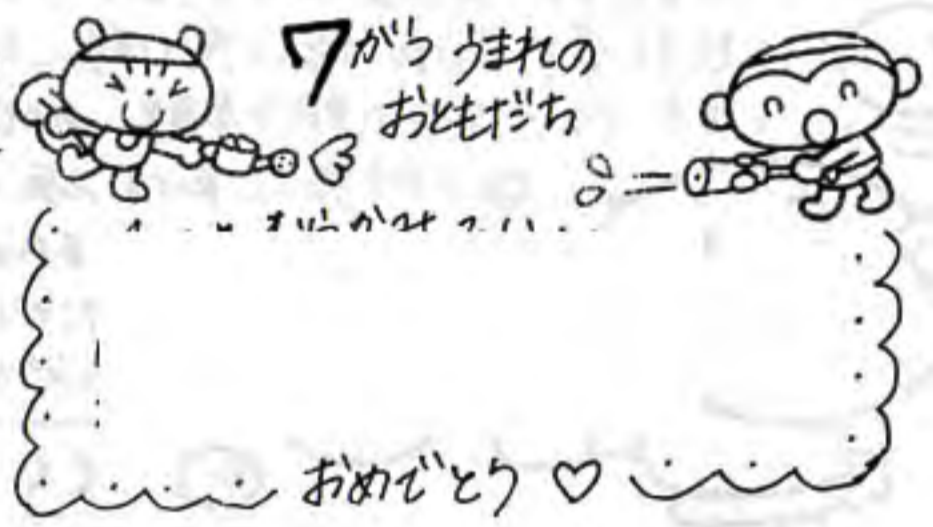 7がつ うまれの
おともだち
おめでとう♡